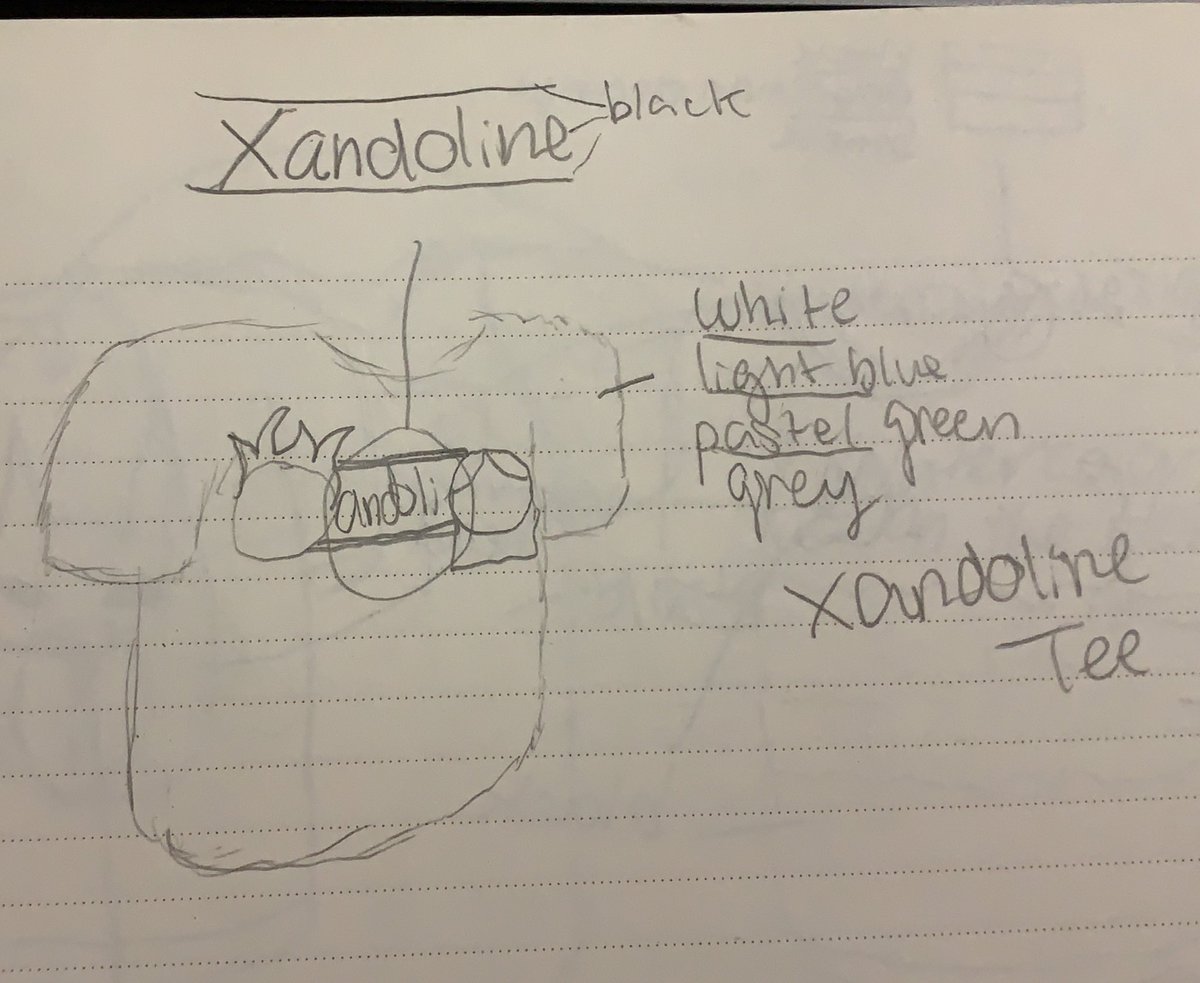 Xandoline
black
white
light blue
pastel green
grey
andoli
Xandoline
Tee